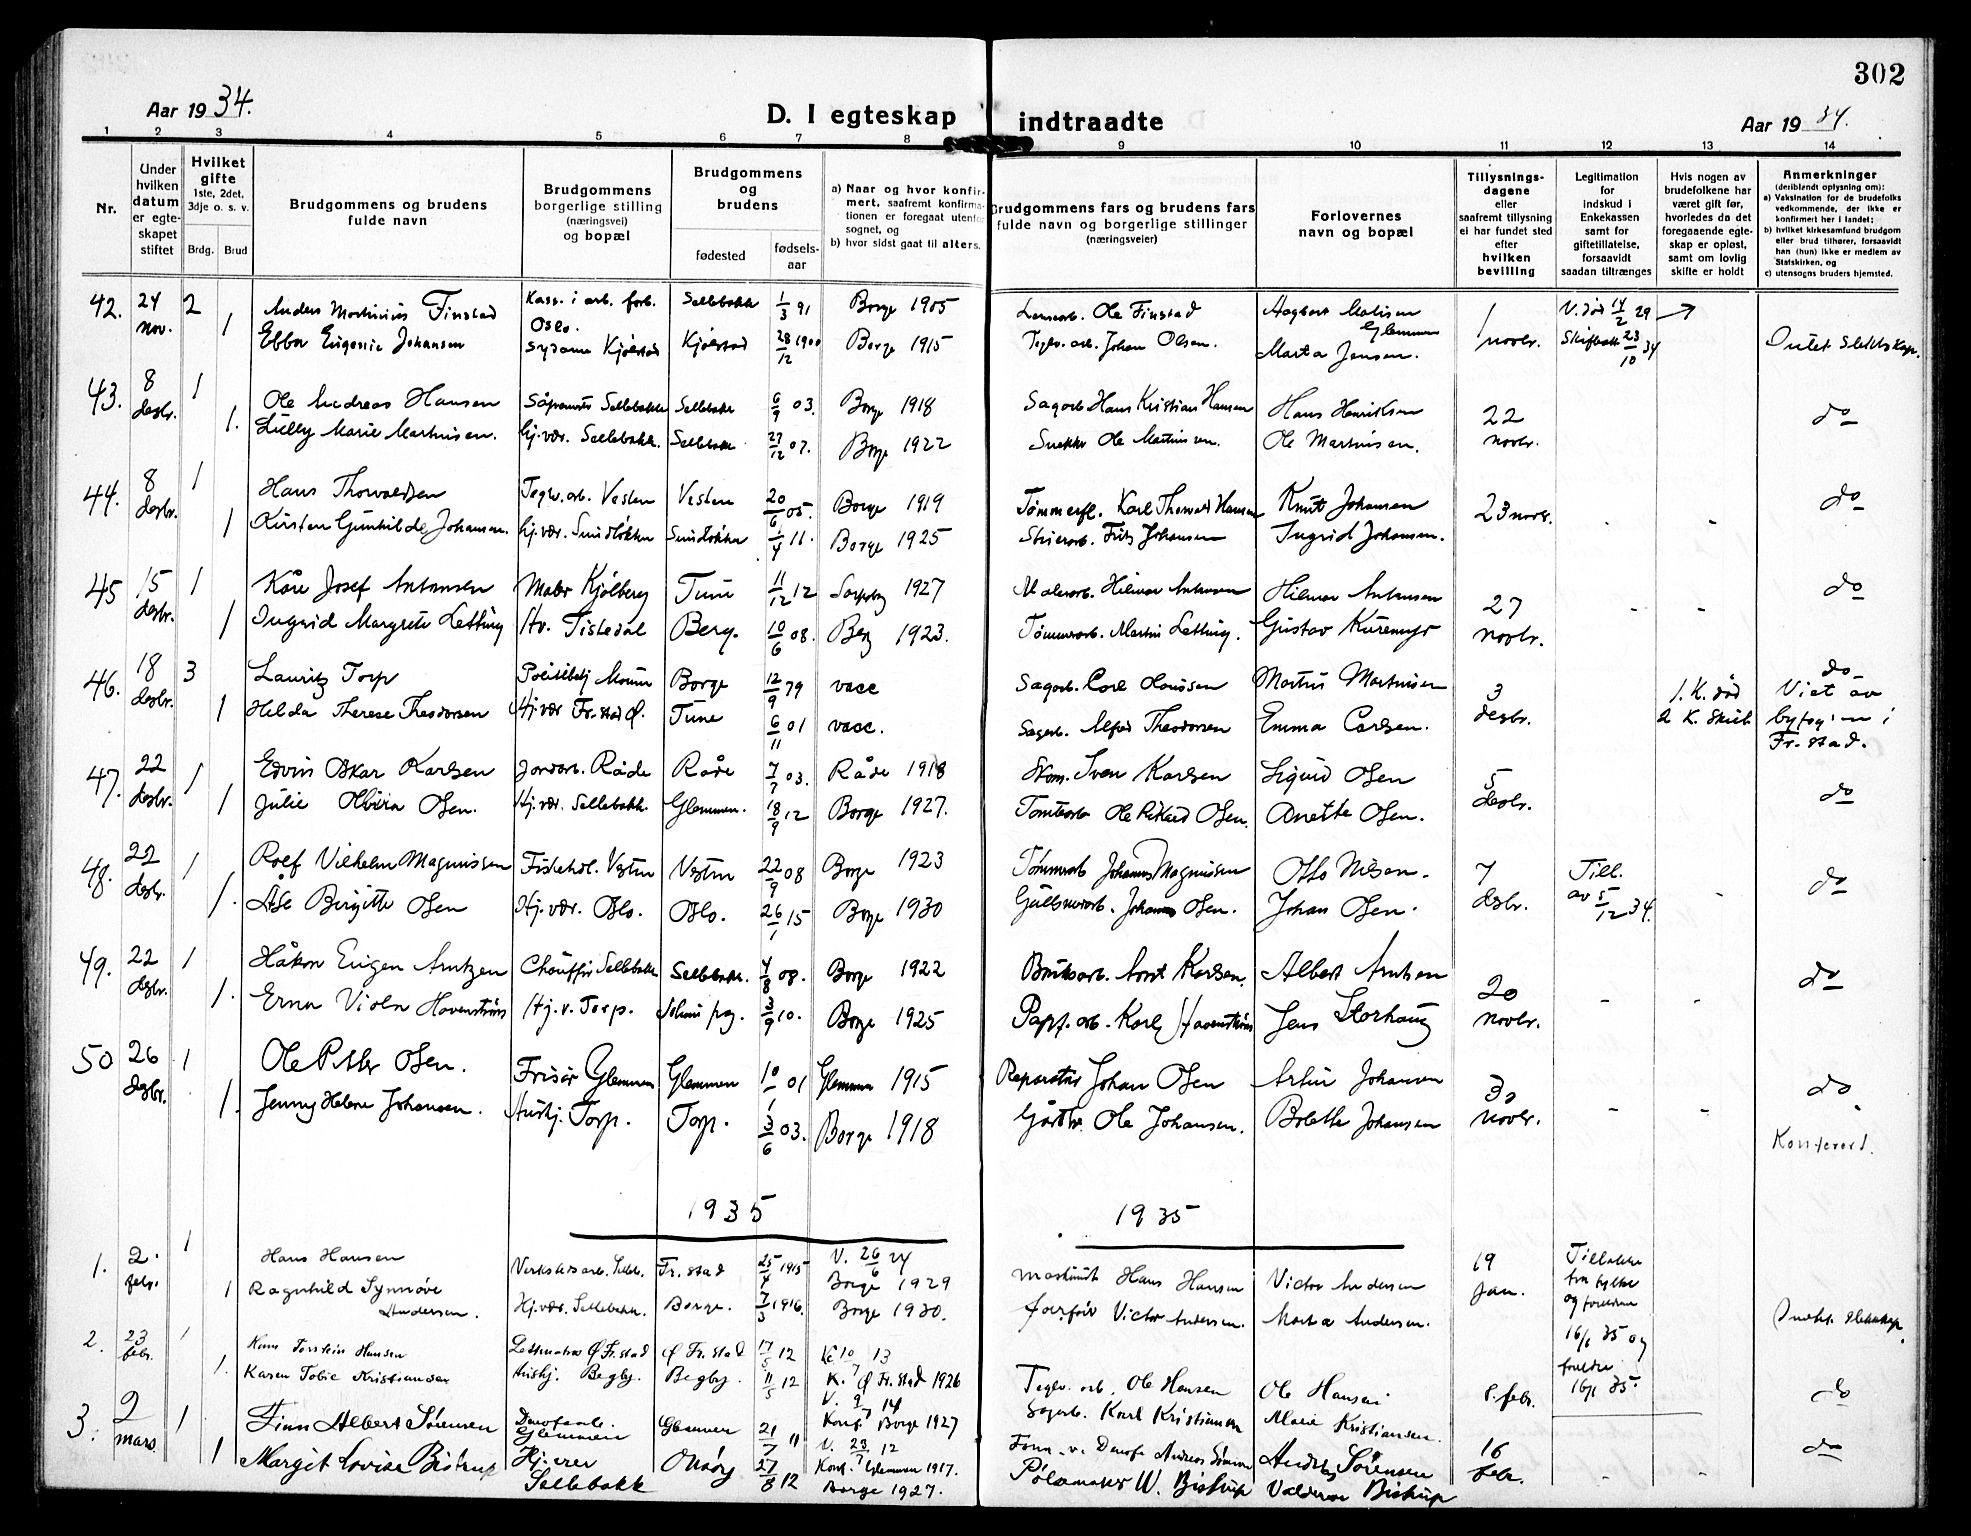 302
Aar 1934.
D. I egteskap indtraadte
Aar 1934.
1 2 3 4 5 6 7 8 9 10 11 12 13 14
Nr.
Under hvilken datum er egte-skapet stiftet
Hvilket gifte
1ste, 2det, 3dje o. s. v.
Brdg. Brud
Brudgommens og brudens fulde navn
Brudgommens borgerlige stilling (næringsvei) og bopæl
Brudgommens og brudens
fødested
fødsels-aar
a) Naar og hvor konfir-mert, saafremt konfirma-tionen er foregaat utenfor sognet, og
b) hvor sidst gaat til alters.
Brudgommens fars og brudens fars fulde navn og borgerlige stillinger (næringsveier)
Forlovernes navn og bopæl
Tillysnings-dagene eller saafremt tillysning ei har fundet sted efter hvilken bevilling
Legitimation for indskud i Enkekassen samt for giftetillatelse, forsaavidt saadan tiltrænges
Hvis nogen av brudefolkene har været gift før, hvorledes da det foregaaende egte-skap er opløst, samt om lovlig skifte er holdt
Anmerkninger
(deriblandt oplysning om):
a) Vaksination for de brudefolks vedkommende, der ikke er konfirmert her i landet;
b) hvilket kirkesamfund brudgom eller brud tilhører, forsaavidt han (hun) ikke er medlem av Statskirken, og
c) utensogns bruders hjemsted.
42. 24 nov. 2 Anders Martinius Finstad Kass. i arb. forb. Oslo. Sellebakk 1/3 91 Borge 1905 Ole Finstad 1 novbr. V. død 14/2 29
1 Ebba Eugenie Johansen Kjølstad Kjølstad 28/12 1900 Borge 1915 Teglv.arb. Johan Olsen. Marta Jensen. 23/10 34 Intet Slektskap.
43. 8 desbr. 1 Ole Andreas Hansen Sellebakk Sellebakk 6/9 03. Borge 1918 Sagarb. Hans Kristian Hansen Hans Henriksen 22 novbr. do
1. Lilly Marie Martinsen. Hj.vær. Sellebakk. Sellebakk 27/12 07. Borge 1922 Snekker Ole Martinsen. Ole Martinsen.
44. 8 desbr. 1 Hans Thorvaldsen Teglv.arb. Vesten Vesten 20/6 05. Borge 1919 Tømmerfl. Karl Thorvald Hansen Knut Johansen 23 novbr. do
1 Kirsten Gunhilde Johansen. Hj.vær. Sundløkken Sundløkka 1/4 11. Borge 1925 Fritz Johansen Ingrid Johansen.
45 15 desbr. 1 Kåre Josef Antonsen Maler Kjølberg Tune 11/12 12 Sarpsborg 1927 Malerarb. Hilmar Antonsen Hilmar Antonsen 27 novbr. do
1 Ingrid Margrete Letting Hv. Tistedal Berg. 10/6 08. Berg 1923. Tømmerarb. Martin Letting. Gustav
46. 18 desbr. 3 Lauritz Torp Borge 12/9 79 vacc Sagarb. Carl Martin Martinsen 3 desbr. 1. K. død do
1 Hilda Therese Theodorsen Hj.vær Fr.stad Ø. Tune 6/11 01 vacc. Sagarb. Alfred Theodorsen Emma Carlsen. 2 K. Skilt Viet av byfog. i Fr.stad.
47. 22 desbr. 1 Edvin Oskar Karlsen Jordarb. Råde Råde 7/7 03. Råde 1918 Sven Karlsen Sigurd Olsen 5 desbr. do
1 Julie Olsen. Hj.vær. Sellebakk. Glemmen. 18/9 12 Borge 1927. Tomtearb Ole Rikard Olsen. Anette Olsen.
48. 22 desbr. 1 Rolf Vilhelm Magnussen Fiskehdl. Vesten Vesten 22/9 08 Borge 1923 Tømmerarb Johannes Magnussen Otto Nilsen. 7 desbr. Till. av 5/12 34. do
1. Åse Birgitte Olsen Hj.vær. Oslo. Oslo. 26/1 15 Borge 1930 Johannes Olsen. Johan Olsen.
49. 22 desbr. 1 Håkon Eugen Arntzen Chauffør Sellebakk Sellebakk. 4/8 08. Borge 1922 Bruksarb. Arnt Karlsen. Albert Arntsen 20 novbr. do
1. Erna Viola Havenstrøm Hj.v. Torp. 3/9 10. Borge 1925 Papf. arb. Karl Havenstrøm Jens Storhaug
50 26 desbr. 1 Ole Petter Olsen. Frisør Glemmen Glemmen 10/1 01 Glemmen 1915 Reparatør Johan Olsen Artur Johansen 30 novbr. do
1. Jenny Helene Johansen. Hushj. Torp. Torp. 3/6 03. Borge 1918 Ole Johansen. Bolette Johansen
Konferert.
1935 1935
1. 2. febr. 1 Hans Hansen Verkstedsarb. Selleb. Fr.stad 25/4 1915 V. 26/6 24 Borge 1929 Maskinist Hans Hansen Victor Andersen 19 Jan. Tillatelse fra fylke og foreldrene 16/1 35 og foreldre 16/1 35.
1 Ragnhild Synnøve Andersen. Hj.vær. Sellebakk. Borge. 7/3 1916. Borge 1930. Victor Andersen. Marta Andersen. Intet slektskap.
2. 23 febr. 1 Hans Torstein Hansen Ø Fr.stad Ø Fr.stad 17/5 12 13 K. Ø Fr.stad 1926 Teglv. arb. Ole Hansen Ole Hansen 8. febr. do
1. Karen Tobie Kristiansen Hushj. Begby. Begby. 11/5 12 V. 9/7 14 Konf. Borge 1927 Sagarb. Karl Kristiansen Marie Kristiansen.
3. 2 mars 1 Finn Albert Sørensen Glemmen Glemmen 21/7 11 V. 23/7 12 Konf. Glemmen 1917. Anders Sørensen 16 febr. do
1 Margit Lovise Bistrup Hj. vær Sellebakk Onsøy 27/8 12 Borge 1927. Pølsemaker W. Bistrup Valdemar Bistrup